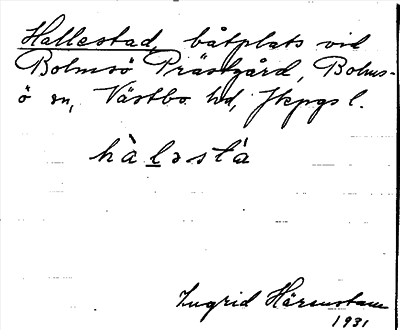 Hallestad, båtplats vid
Bolmsö Prästgård, Bolms-
ö sn, Västbo hd, Jkpgs l.
hàləstá
Ingrid Härenstam
1931